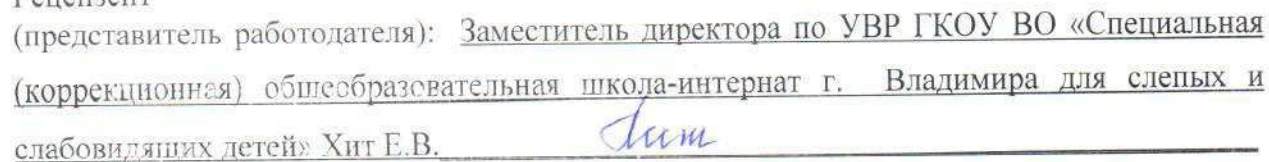 Рецензент
(представитель работодателя): Заместитель директора по УВР ГКОУ ВО «Специальная
(коррекционная) общеобразовательная школа-интернат г. Владимира для слепых и
слабовидящих детей» Хит Е.В. Хит